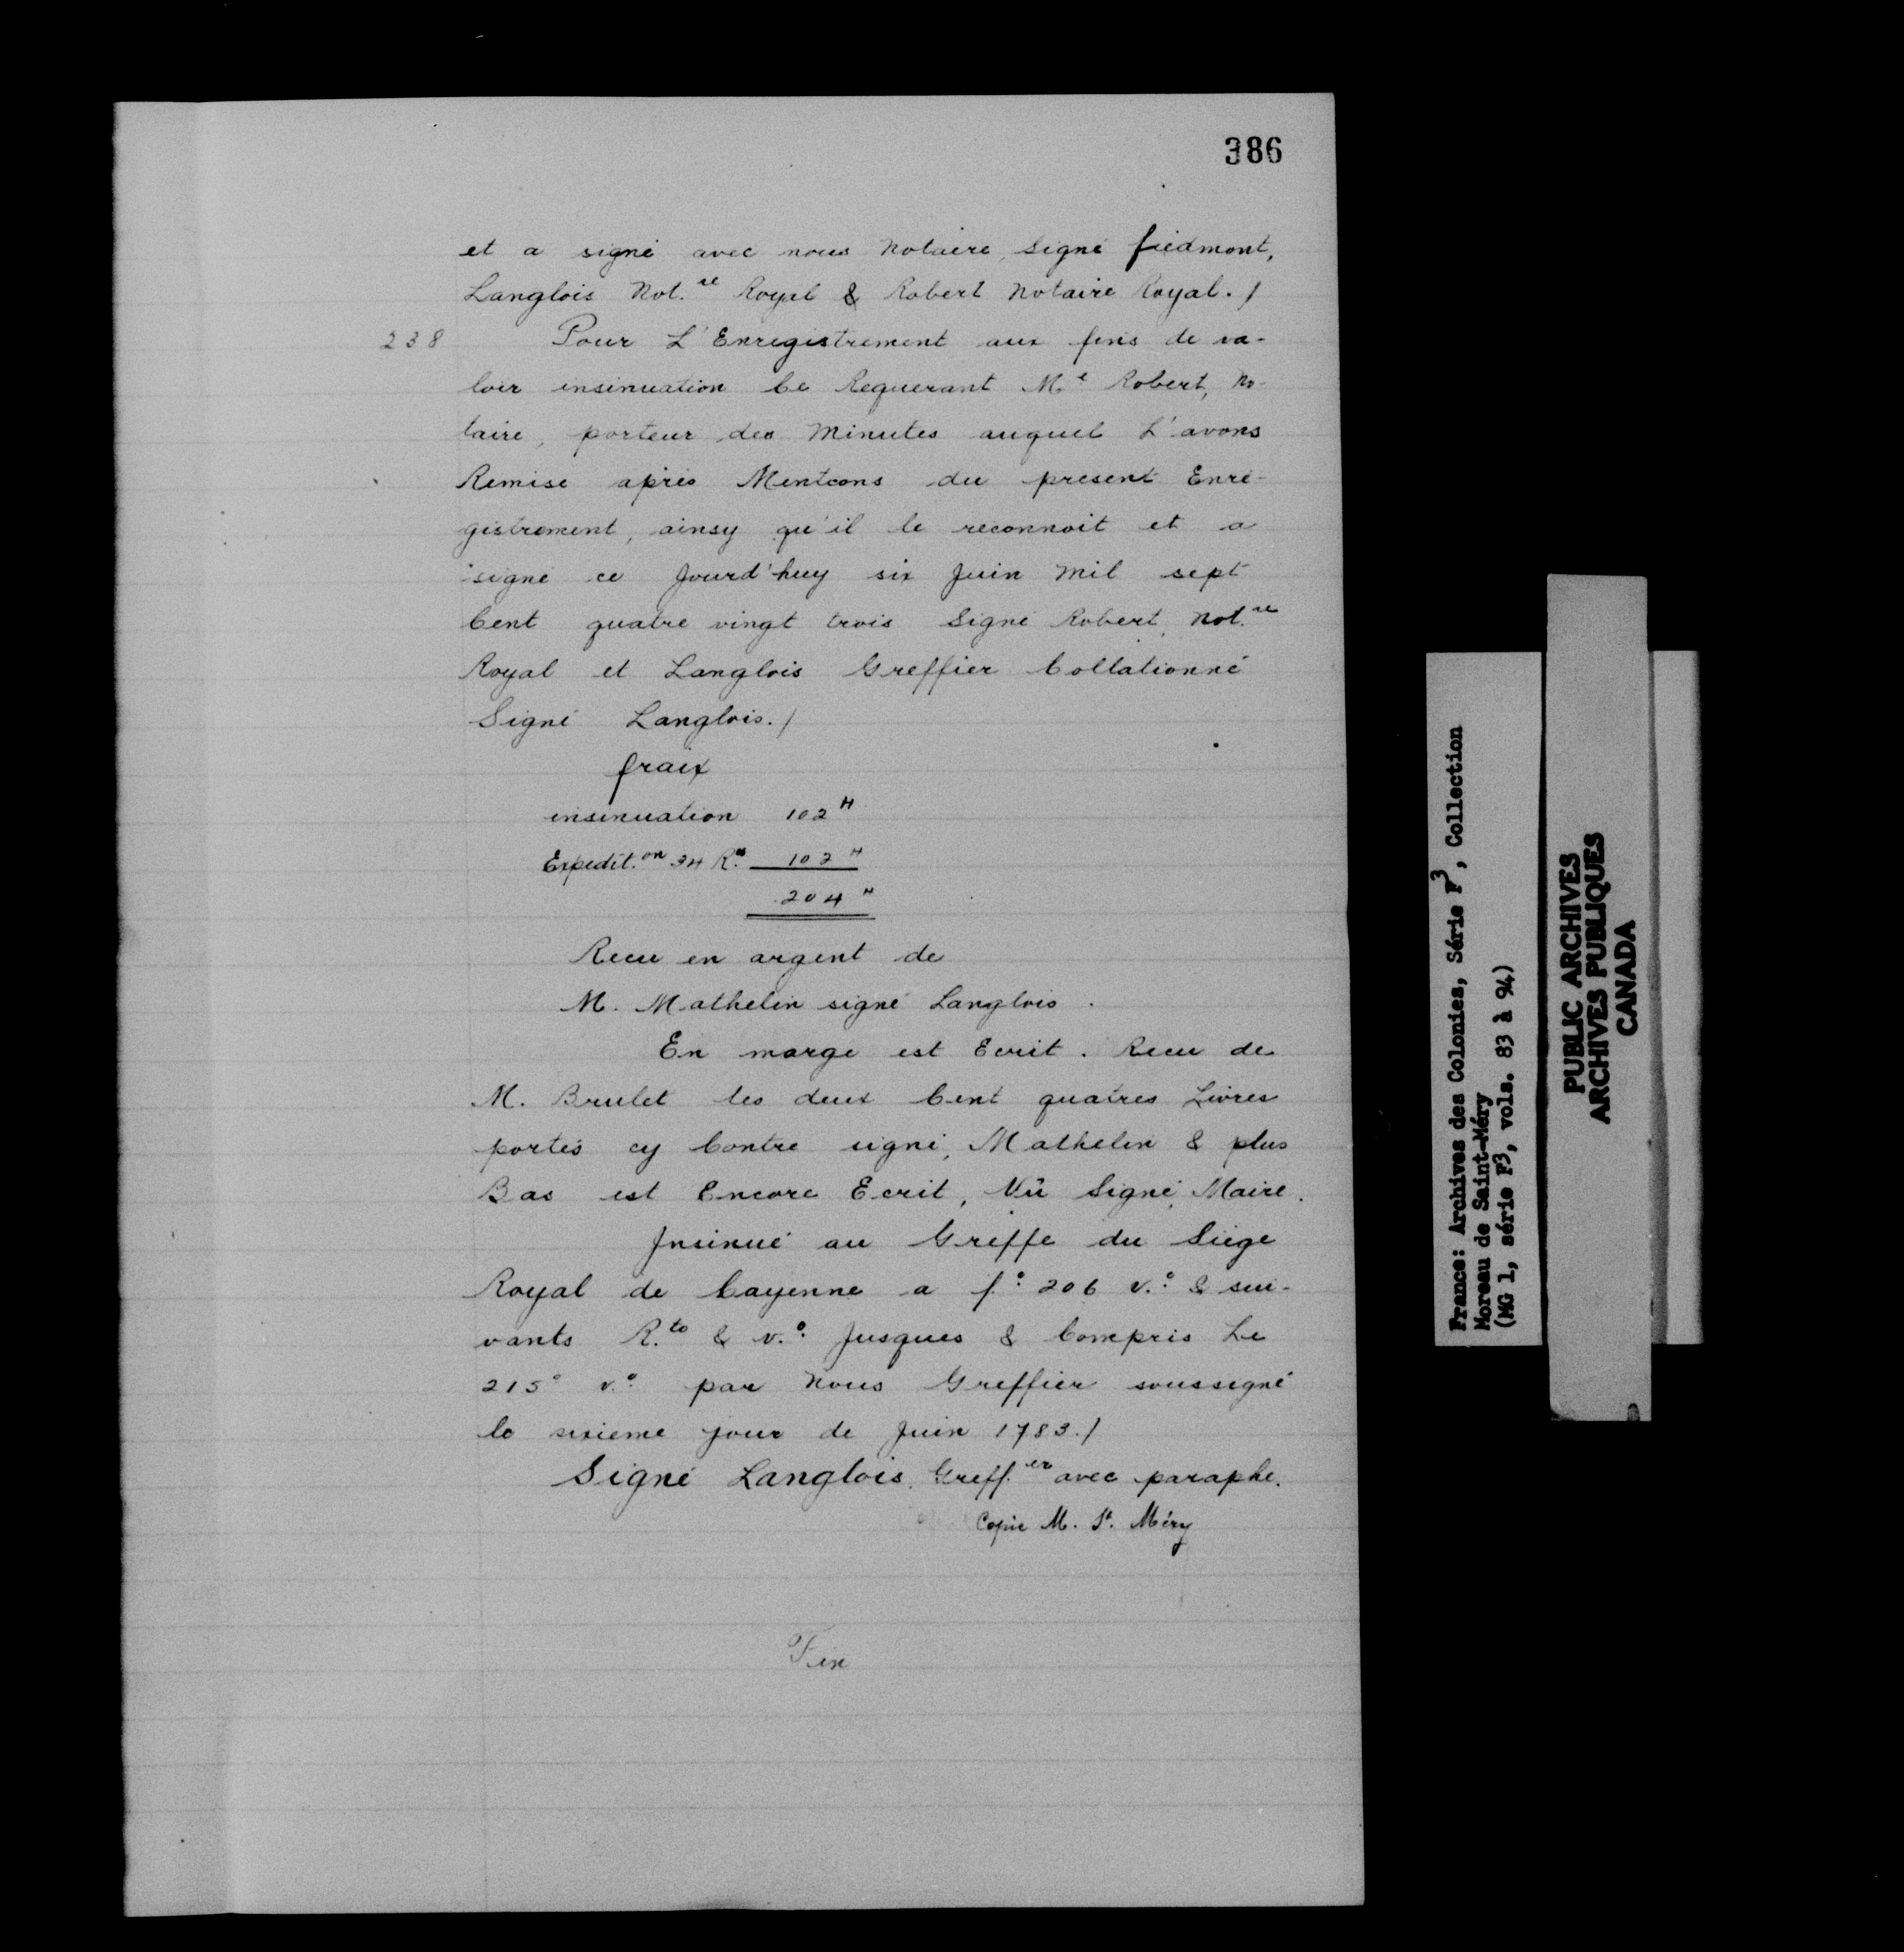 386
et a signé avec nous Notaire, Signé fiedmont,
Langlois Not.re Royal & Robert Notaire Royal./
238
Pour L'Enregistrement aux fins de va-
loir insinuation Ce Requerant Me Robert, No-
taire, porteur des Minutes auquel L'avons
Remise après Mentcons du present Enre-
gistrement, ainsy qu'il le reconnoit et a
signé ce Jourd'huy six Juin Mil sept
Cent quatre vingt trois Signé Robert, Not.re
Royal et Langlois Greffier Collationné
Signé Langlois./
fraix
insinuation 102 ₶
Expedit.on 34 R.s 102 ₶
204 ₶
Recu en argent de
M. Mathelin signé Langlois.
En marge est Ecrit. Recu de
M. Brulet les deux Cent quatres Livres
portés cy Contre signé, Mathelin & plus
Bas est Encore Ecrit, Vû Signé, Maire.
Insinué au Greffe du Siège
Royal de Cayenne a f.° 206 v.° & sui-
vants R.to & v.° Jusques & Compris Le
215° v.° par Nous Greffier soussigné
le sixieme jour de Juin 1783./
Signé Langlois, Greff.er avec paraphe.
Copie M. St. Méry
Fin
France: Archives des Colonies, Série F3, Collection
Moreau de Saint-Méry
(MG 1, série F3, vols. 83 à 94)
PUBLIC ARCHIVES
ARCHIVES PUBLIQUES
CANADA